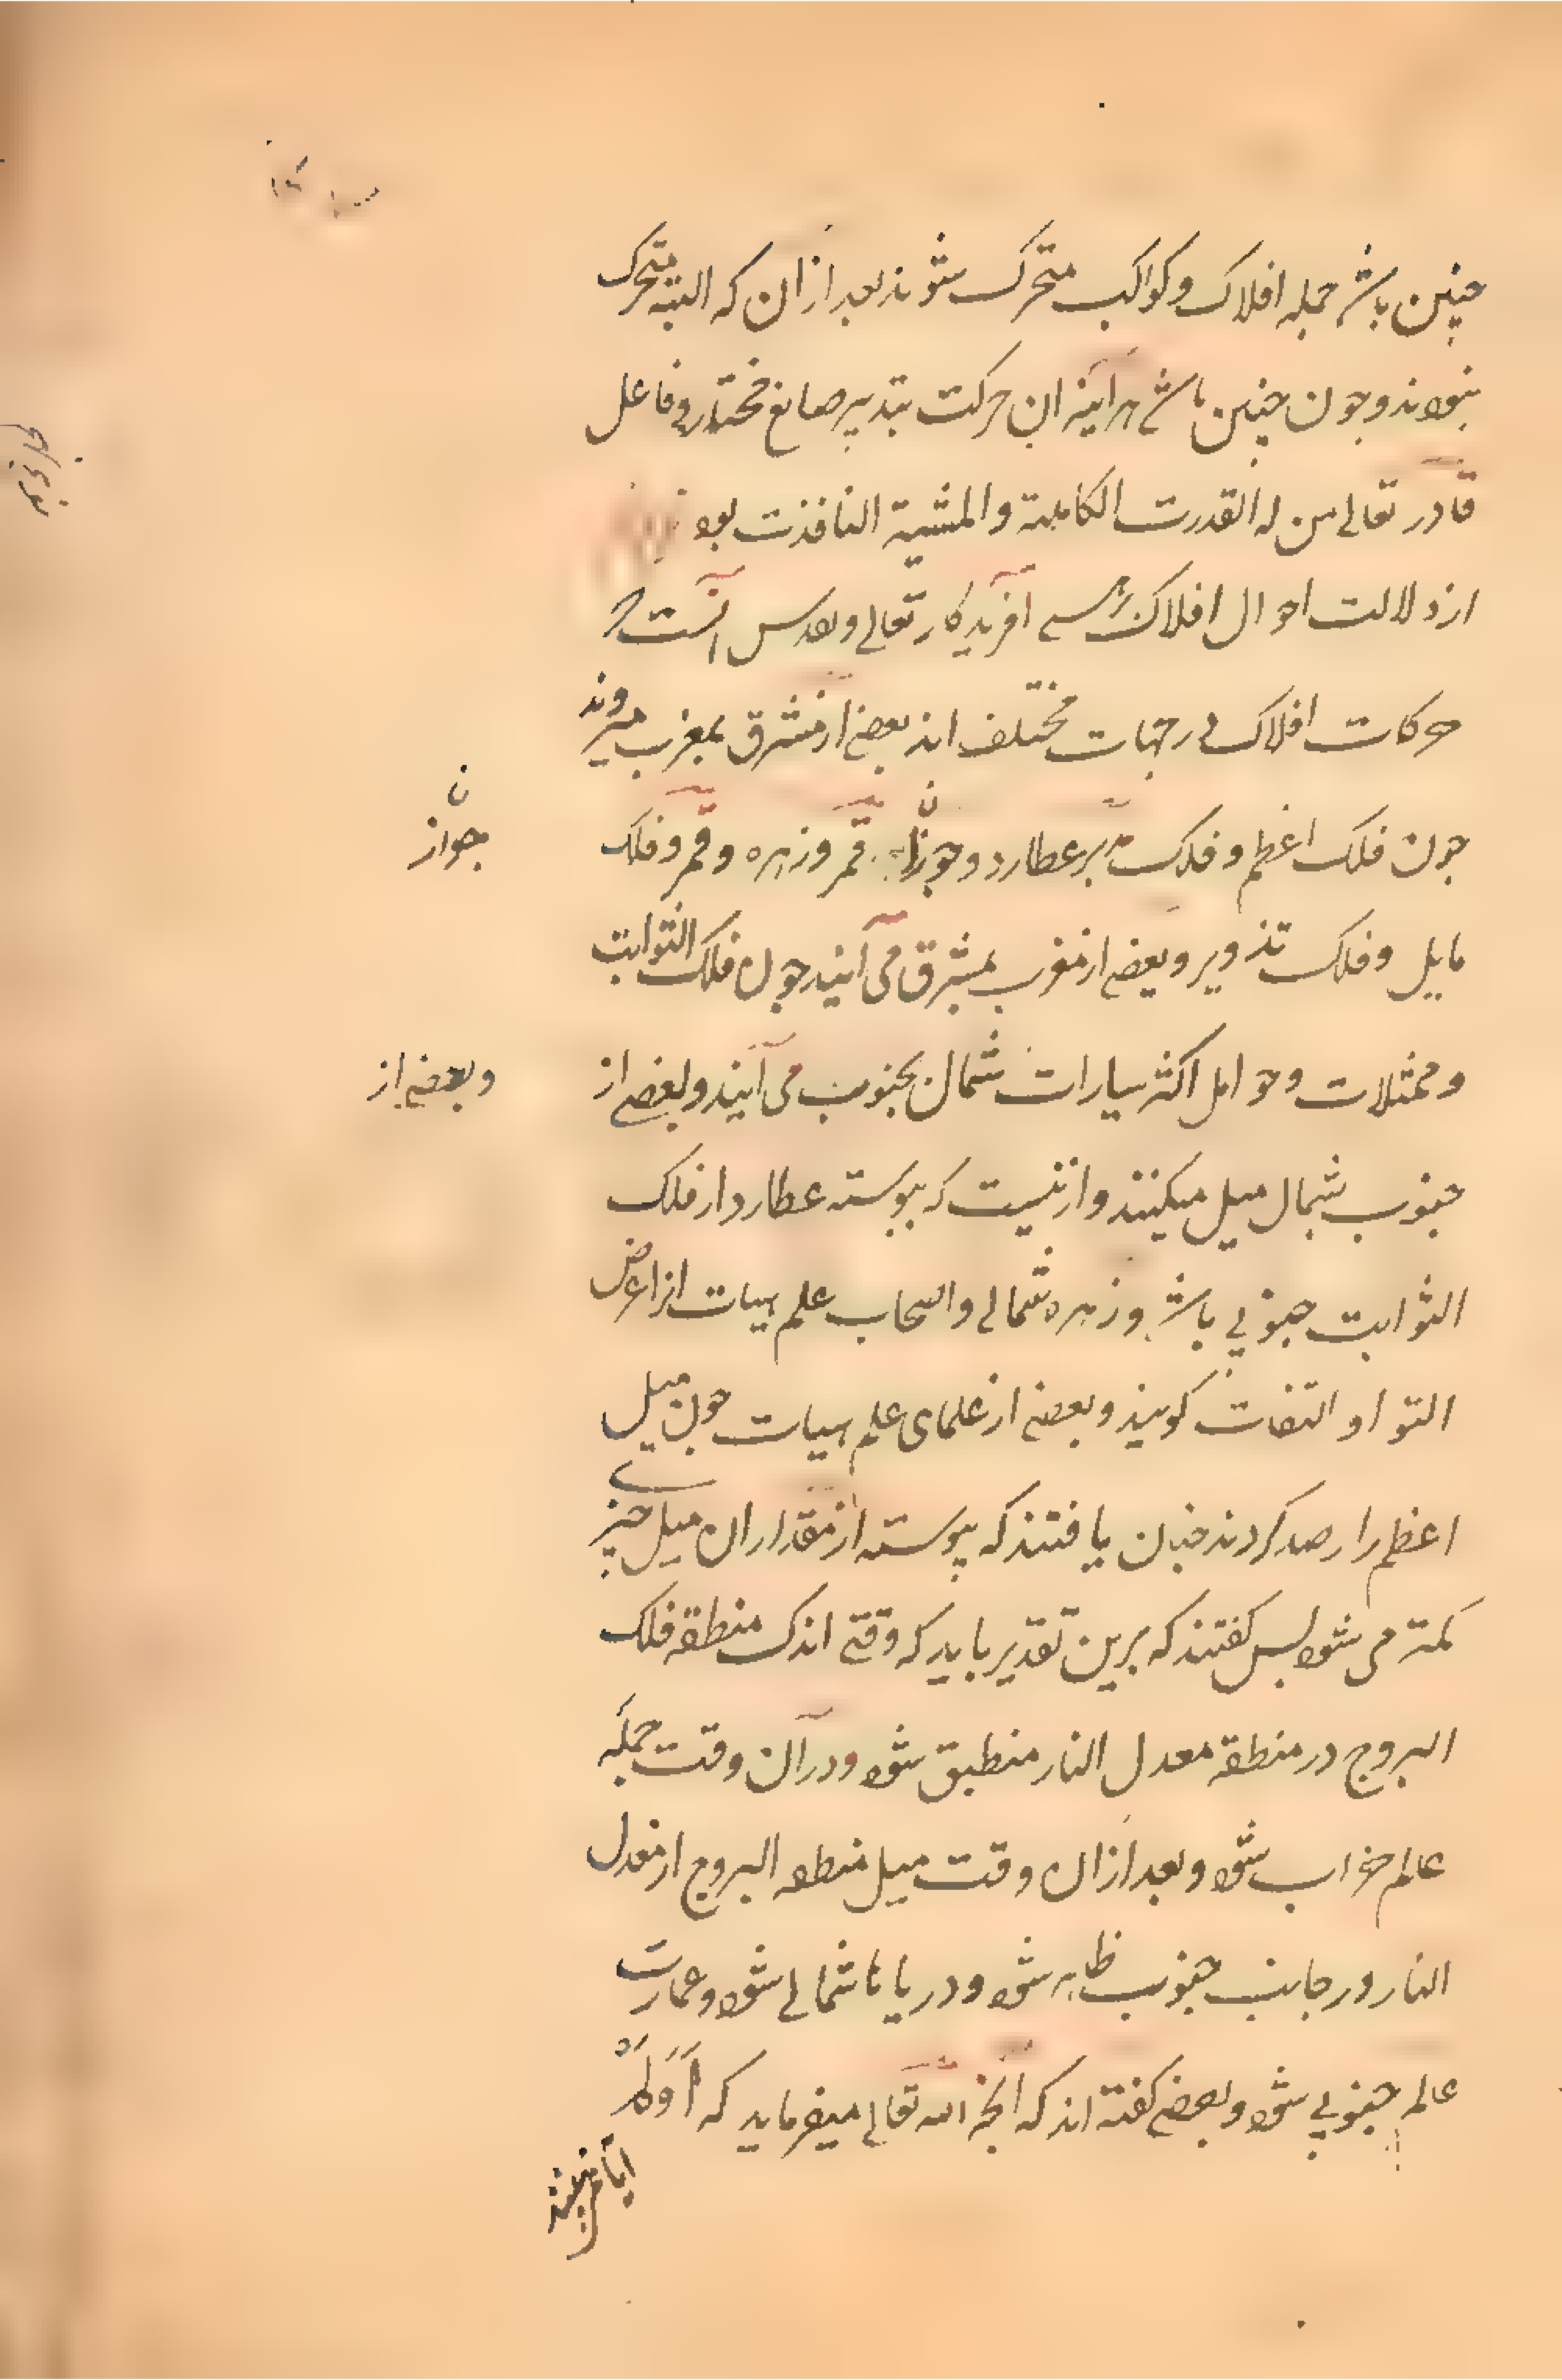 چنین باشد جمله افلاک و کواکب متحرک شوند بعد ازان که البته متحرک
نبودند و چون چنین باشد هرآینه ان حرکت بتدبیر صانع مختار و فاعل
قادر تعالی من له القدرت الکاملة والمشیة النافذت بود
از دلالت احوال افلاک آفریدکار تعالی و تقدس انست که
حرکات افلاک در جهات مختلف اند بعضی از مشرق بمغرب میروند
چون فلک اعظم و فلک مدبر عطارد و جوزا قمر و زهره و قمر و فلک
جوازن
مایل و فلک تدویر و بعضی از مغرب بمشرق می آیند چون فلک الثوابت
و ممثلات و حوامل اکثر سیارات شمال بجنوب می آیند و بعضی از
و بعضی از
جنوب بشمال میل میکنند و ازنیست که پیوسته عطارد از فلک
الثوابت جنوبی باشد و زهره شمالی و اصحاب علم هیات انرا عرض
التوا و التفات کویند و بعضی از علمای علم هیات چون میل
اعظم را رصد کردند چنان یافتند که پیوسته از مقدار ان میل چیزی
کمتر می شود پس کفتند که برین تقدیر باید که وقتی اندک منطقه فلک
البروج در منطقه معدل النار منطبق شود و در آن وقت جمله
عالم خراب شود و بعد ازان وقت میل منطقه البروج از معدل
النار در جانب جنوب ظاهر شود و دریاها شمالی شود و عمارت
عالم جنوبی شود و بعضی کفته اند که انچه الله تعالی میفرماید که أَوَلَمْ